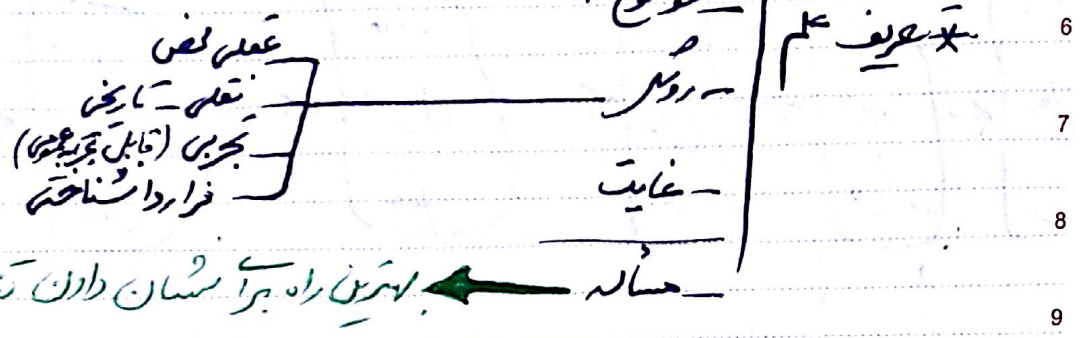 * تعریف علم
- موضوع
- روش
عقلی محض
نقلی - تاریخی
تجربی (قابل تجربه عمومی)
قراردا شناختی
- غایت
- مسأله
بهترین راه برای نشان دادن
6
7
8
9